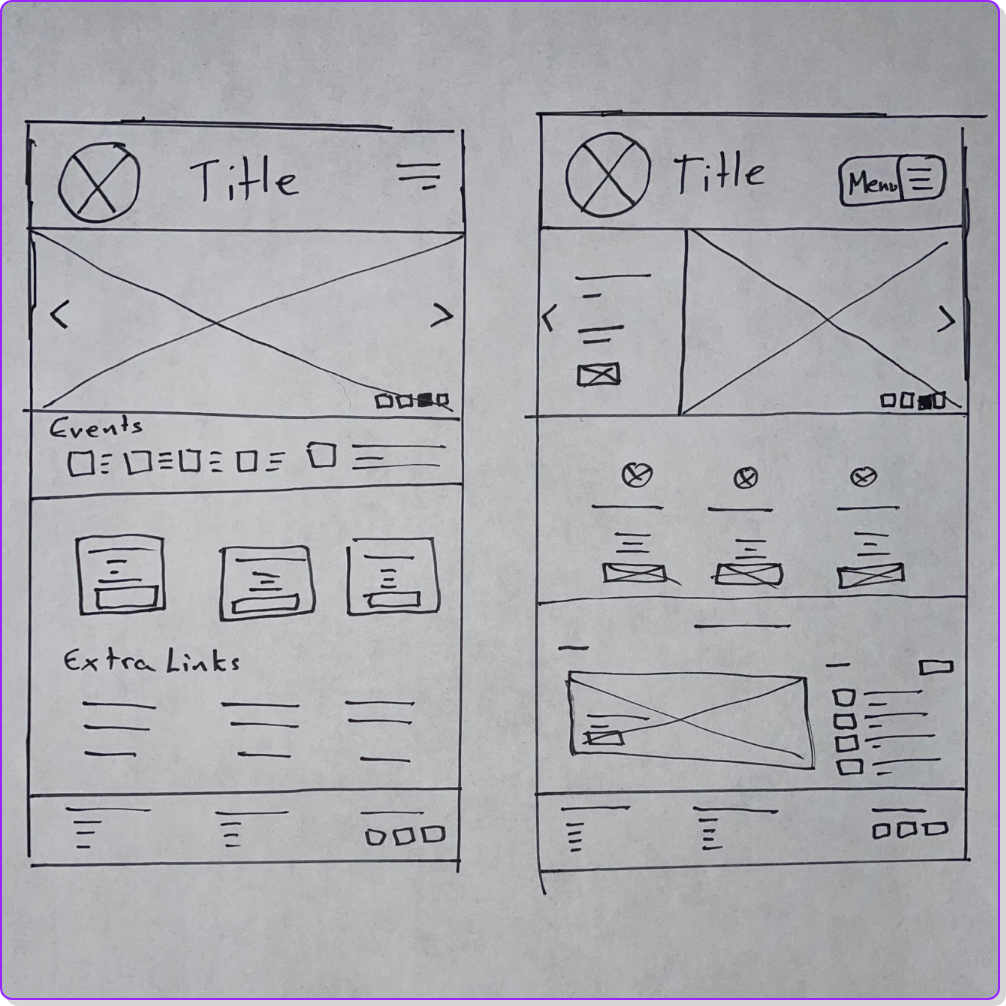 Title
Events
Extra Links
Title
Menu